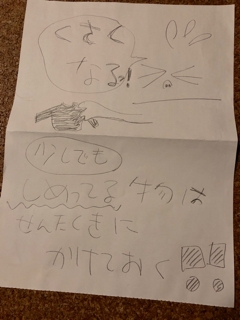 くさく
なる!
少しでも
しめってる物は
せんたくきに
かけておく